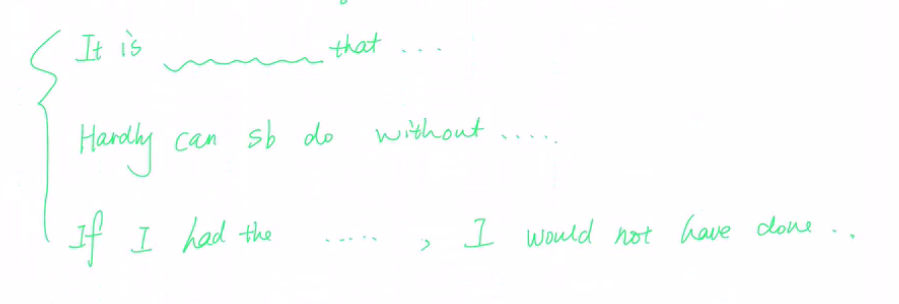 It is ______ that ...
Hardly can sb do without .....
If I had the ....., I would not have done ..